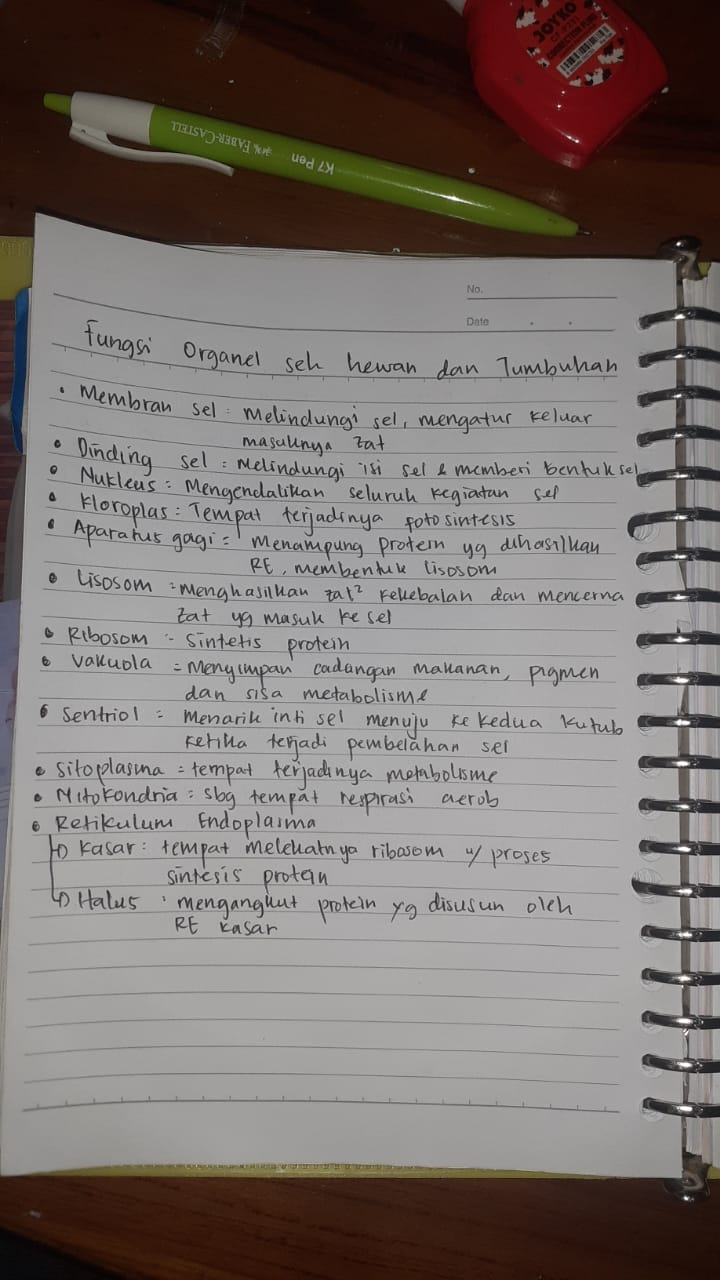 JOYKO
CF-S231
CORRECTION FLUID
K7 Pen FABER-CASTELL
No.
Date
Fungsi Organel seh hewan dan Tumbuhan
• Membran sel : Melindungi sel, mengatur keluar
masuknya zat
• Dinding sel : Melindungi isi sel & memberi bentuk sel
• Nukleus : Mengendalikan seluruh kegiatan sel
• Kloroplas : Tempat terjadinya fotosintesis
• Aparatus gagi : menampung protein yg dihasilkan
RE, membentuk lisosom
• Lisosom : menghasilkan zat² kekebalan dan mencerna
zat yg masuk ke sel
• Ribosom : Sintetis protein
• Vakuola : Menyimpan cadangan makanan, pigmen
dan sisa metabolisme
• Sentriol : Menarik inti sel menuju ke kedua kutub
ketika terjadi pembelahan sel
• Sitoplasma : tempat terjadinya metabolisme
• Mitokondria : sbg tempat respirasi aerob
• Retikulum Endoplasma
↳ Kasar : tempat melekatnya ribosom u/ proses
sintesis protein
↳ Halus : mengangkut protein yg disusun oleh
RE kasar